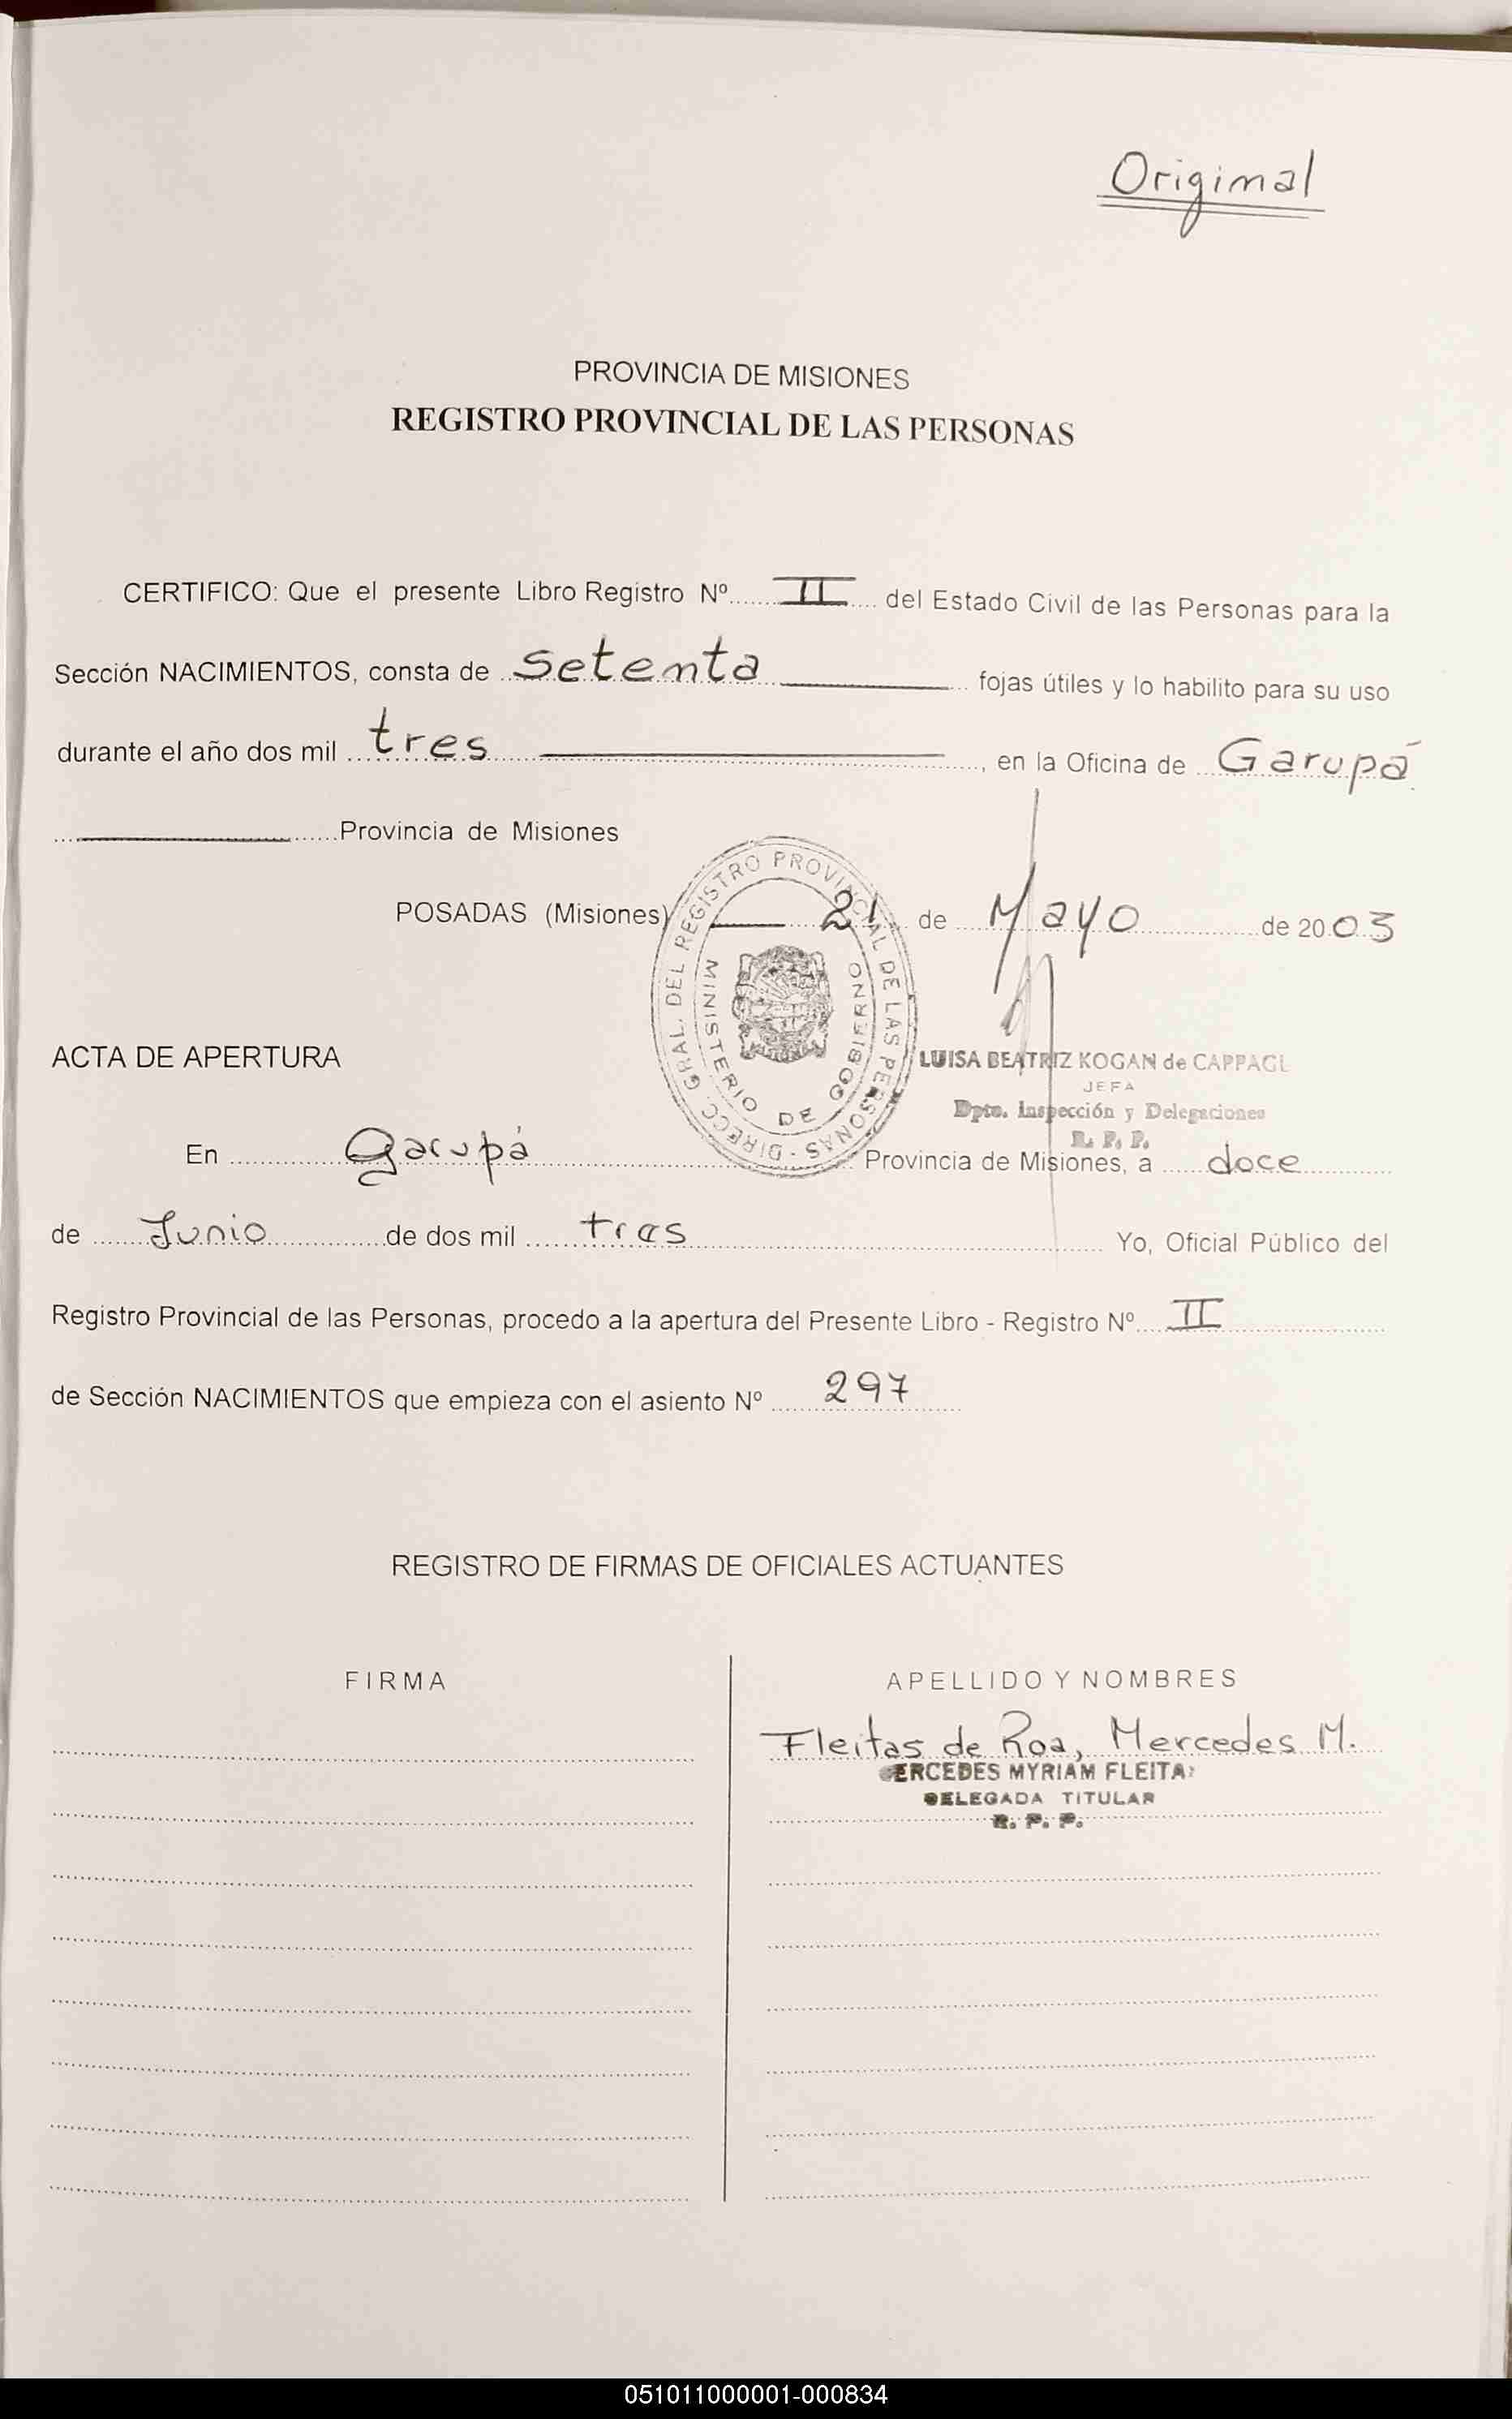 Original
PROVINCIA DE MISIONES
REGISTRO PROVINCIAL DE LAS PERSONAS
CERTIFICO: Que el presente Libro Registro Nº II del Estado Civil de las Personas para la
Sección NACIMIENTOS, consta de setenta fojas útiles y lo habilito para su uso
durante el año dos mil tres, en la Oficina de Garupá
Provincia de Misiones
POSADAS (Misiones) 21 de Mayo de 2003
DIRECC. GRAL. DEL REGISTRO PROVINCIAL DE LAS PERSONAS
MINISTERIO DE GOBIERNO
LUISA BEATRIZ KOGAN de CAPPAGL
JEFA
Dpto. Inspección y Delegaciones
R. P. P.
ACTA DE APERTURA
En Garupá Provincia de Misiones, a doce
de Junio de dos mil tres Yo, Oficial Público del
Registro Provincial de las Personas, procedo a la apertura del Presente Libro - Registro Nº II
de Sección NACIMIENTOS que empieza con el asiento Nº 297
REGISTRO DE FIRMAS DE OFICIALES ACTUANTES
FIRMA APELLIDO Y NOMBRES
Fleitas de Roa, Mercedes M.
ERCEDES MYRIAM FLEITA
DELEGADA TITULAR
R. P. P.
051011000001-000834